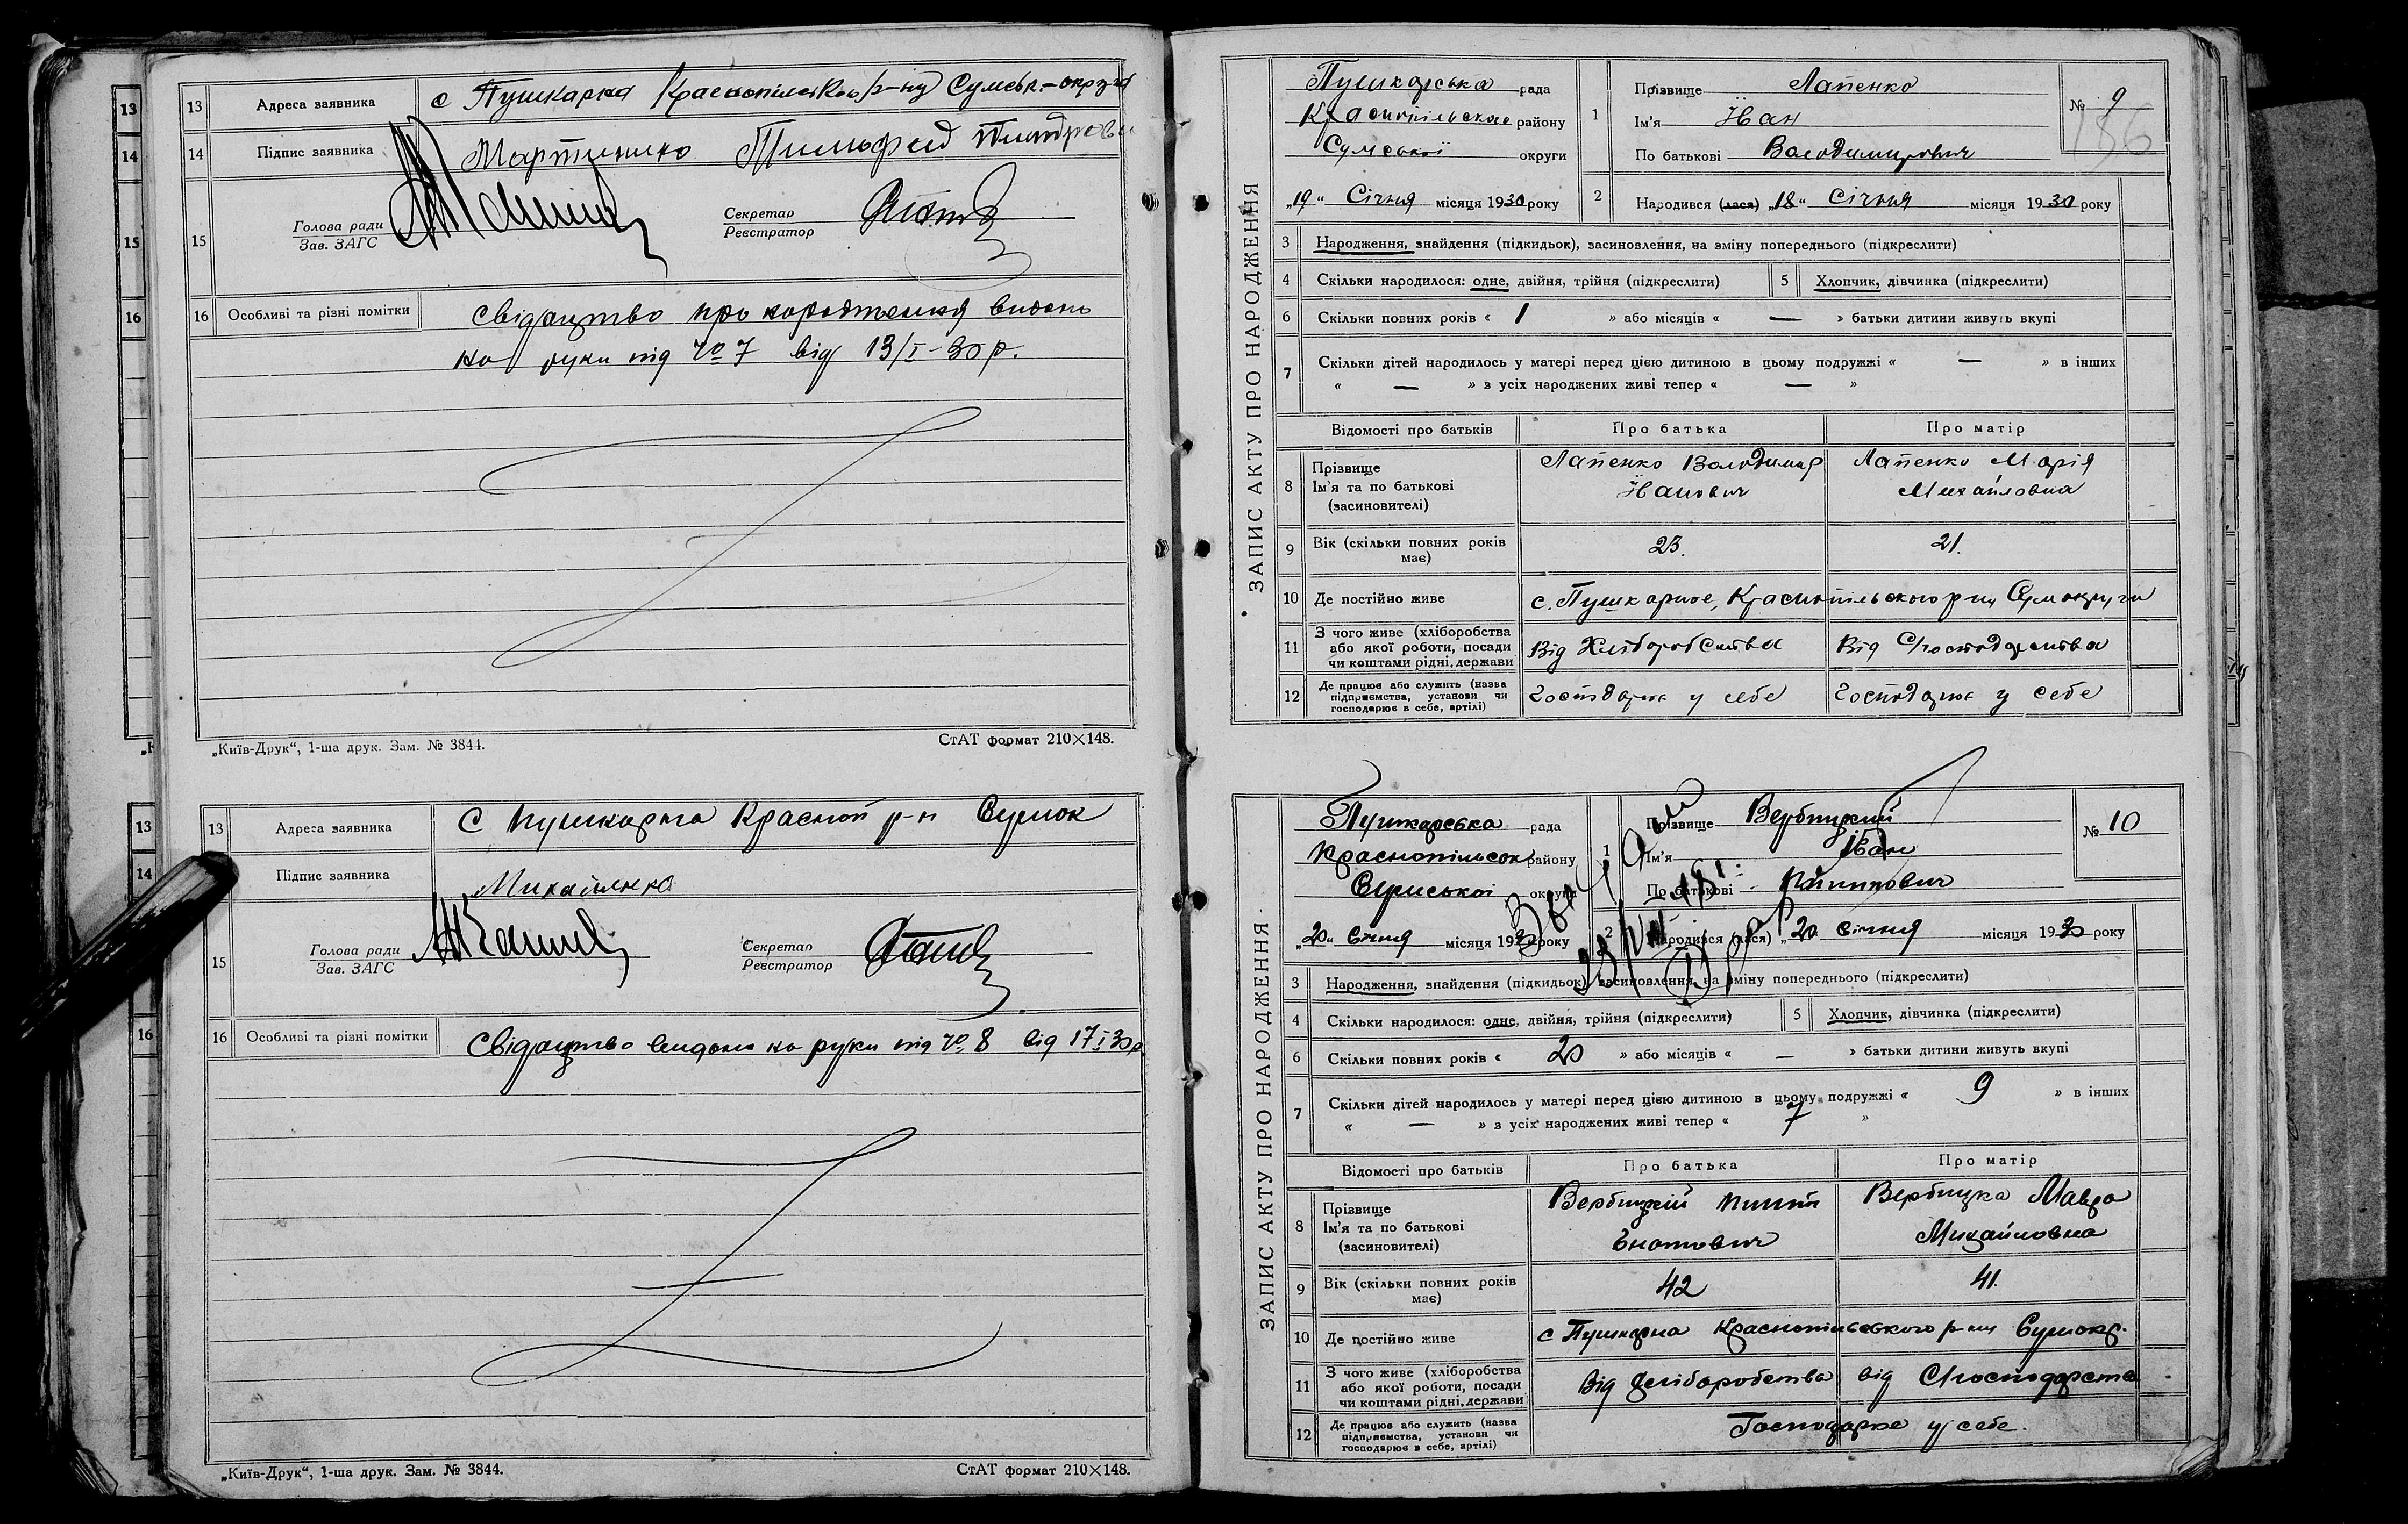 13 Адреса заявника с Пушкарна Краснопільськ р-ну Сумськ. округи
14 Підпис заявника Мартиненко
15 Голова ради
Зав. ЗАГС
Секретар
Реєстратор
16 Особливі та різні помітки свідоцтво про народження видано
на руки під № 7 від 13/I-30 р.
„Київ-Друк“, 1-ша друк. Зам. № 3844.
СтАТ формат 210×148.
13 Адреса заявника с Пушкарна Красноп р-н Сумок
14 Підпис заявника Михайленко
15 Голова ради
Зав. ЗАГС
Секретар
Реєстратор
16 Особливі та різні помітки Свідоцтво видано на руки під № 8 від 17 I 30 р
„Київ-Друк“, 1-ша друк. Зам. № 3844.
СтАТ формат 210×148.
ЗАПИС АКТУ ПРО НАРОДЖЕННЯ
Пушкарська рада
Краснопільского району
Сумської округи
„19“ Січня місяця 1930 року
1 Прізвище Лапенко
Ім'я Іван
По батькові Володимирович
№ 9
186
2 Народився (лася) „18“ Січня місяця 1930 року
3 Народження, знайдення (підкидьок), засиновлення, на зміну попереднього (підкреслити)
4 Скільки народилося: одне, двійня, трійня (підкреслити) 5 Хлопчик, дівчинка (підкреслити)
6 Скільки повних років « 1 » або місяців « — » батьки дитини живуть вкупі
7 Скільки дітей народилось у матері перед цією дитиною в цьому подружжі « — » в інших
« — » з усіх народжених живі тепер « — »
Відомості про батьків Про батька Про матір
8 Прізвище
Ім'я та по батькові
(засиновителі)
Лапенко Володимир
Іванович
Лапенко Марія
Михайловна
9 Вік (скільки повних років має) 23. 21.
10 Де постійно живе с. Пушкарное, Краснопільського р-ну Сумокруги
11 З чого живе (хліборобства
або якої роботи, посади
чи коштами рідні, держави
Від Хліборобства Від Господарства
12 Де працює або служить (назва
підприємства, установи чи
господарює в себе, артілі)
Господарює у себе Господарює у себе
ЗАПИС АКТУ ПРО НАРОДЖЕННЯ
Пушкарська рада
Краснопільськ району
Сумської округи
„20“ Січня місяця 1930 року
1 Прізвище Вербицкий
Ім'я Іван
По батькові Пилипович
№ 10
2 Народився (лася) „20 Січня місяця 1930 року
3 Народження, знайдення (підкидьок), засиновлення, на зміну попереднього (підкреслити)
4 Скільки народилося: одне, двійня, трійня (підкреслити) 5 Хлопчик, дівчинка (підкреслити)
6 Скільки повних років « 20 » або місяців « — » батьки дитини живуть вкупі
7 Скільки дітей народилось у матері перед цією дитиною в цьому подружжі « 9 » в інших
« — » з усіх народжених живі тепер « 7 »
Відомості про батьків Про батька Про матір
8 Прізвище
Ім'я та по батькові
(засиновителі)
Вербицкій Пилип
Вербицка Мавра
Михайловна
9 Вік (скільки повних років має) 42 41.
10 Де постійно живе с Пушкарна Краснопільського р-ну Сумокр.
11 З чого живе (хліборобства
або якої роботи, посади
чи коштами рідні, держави
Від хліборобства від Господарства
12 Де працює або служить (назва
підприємства, установи чи
господарює в себе, артілі)
Господарює у себе.